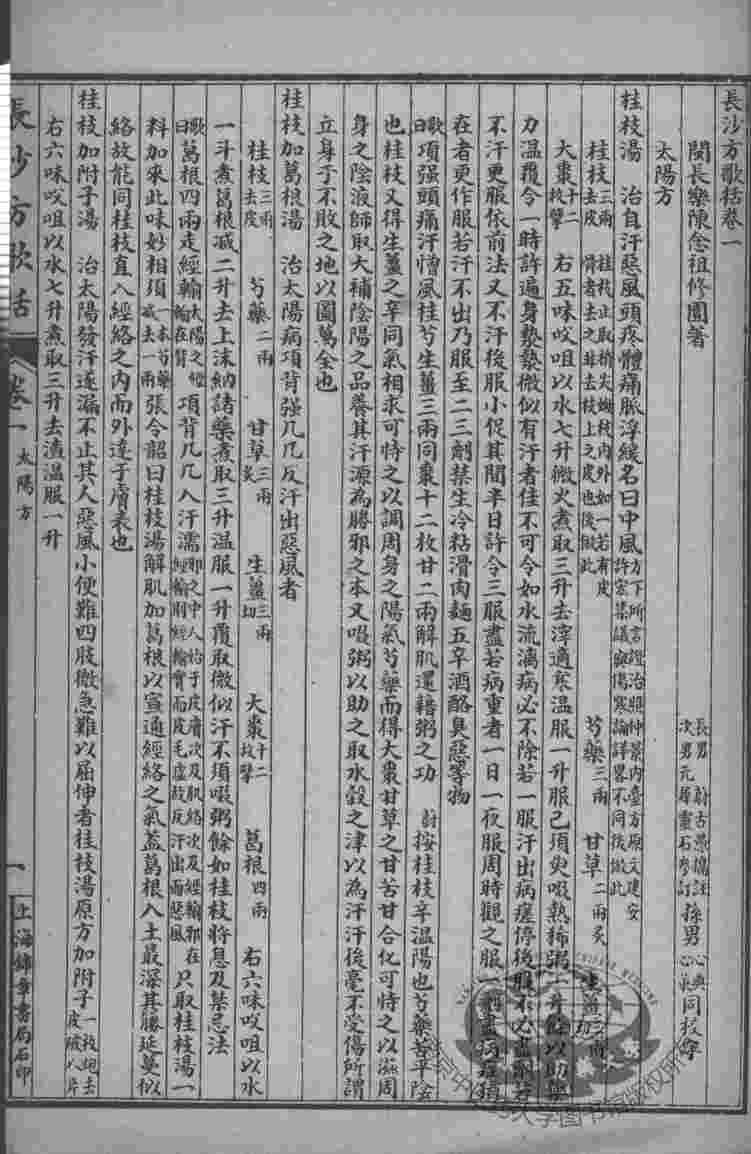 長沙方歌括卷一
閩長樂陳念祖修園著
長男 蔚古愚擬註
次男元犀靈石參訂
孫男 心典 心蘭 同校字
太陽方
桂枝湯 治自汗惡風頭疼體痛脈浮緩名曰中風 方下所言證治照仲景內臺方原文建安許宏某議與傷寒論詳畧不同後倣此
桂枝 三兩去皮 桂枝止取梢尖嫩枝內外如一若有皮骨者去之非去枝上之皮也後倣此 芍藥 三兩 甘草 二兩炙 生薑 三兩切
大棗 十二枚擘 右五味㕮咀以水七升微火煮取三升去滓適寒溫服一升服已須臾啜熱稀粥一升餘以助藥
力溫覆令一時許遍身漐漐微似有汗者佳不可令如水流漓病必不除若一服汗出病瘥停後服不必盡劑若
不汗更服依前法又不汗後服小促其間半日許令三服盡若病重者一日一夜服周時觀之服一劑盡病症猶
在者更作服若汗不出乃服至二三劑禁生冷粘滑肉麵五辛酒酪臭惡等物
歌曰項强頭痛汗憎風桂芍生薑三兩同棗十二枚甘二兩解肌還藉粥之功 蔚按桂枝辛溫陽也芍藥苦平陰
也桂枝又得生薑之辛同氣相求可恃之以調周身之陽氣芍藥而得大棗甘草之甘苦甘合化可恃之以滋周
身之陰液師取大補陰陽之品養其汗源為勝邪之本又啜粥以助之取水穀之津以為汗汗後毫不受傷所謂
立身于不敗之地以圖萬全也
桂枝加葛根湯 治太陽病項背强几几反汗出惡風者
桂枝 三兩去皮 芍藥 二兩 甘草 三兩炙 生薑 三兩切 大棗 十二枚擘 葛根 四兩 右六味㕮咀以水
一斗煮葛根減二升去上沫納諸藥煮取三升溫服一升覆取微似汗不須啜粥餘如桂枝將息及禁忌法
歌曰葛根四兩走經輸 太陽之經輸在背 項背几几入汗濡 邪之中人始于皮膚次及肌絡次及經輸邪在經輸則經輸實而皮毛虛故反汗出而惡風 只取桂枝湯一
料加來此味妙相須 一本芍藥減去一兩 張令韶曰桂枝湯解肌加葛根以宣通經絡之氣蓋葛根入土最深其藤延蔓似
絡故能同桂枝直入經絡之內而外達于膚表也
桂枝加附子湯 治太陽發汗遂漏不止其人惡風小便難四肢微急難以屈伸者桂枝湯原方加附子 一枚炮去皮破八片
右六味㕮咀以水七升煮取三升去渣溫服一升
長沙方歌括
卷一
太陽方
一
上海錦章書局石印